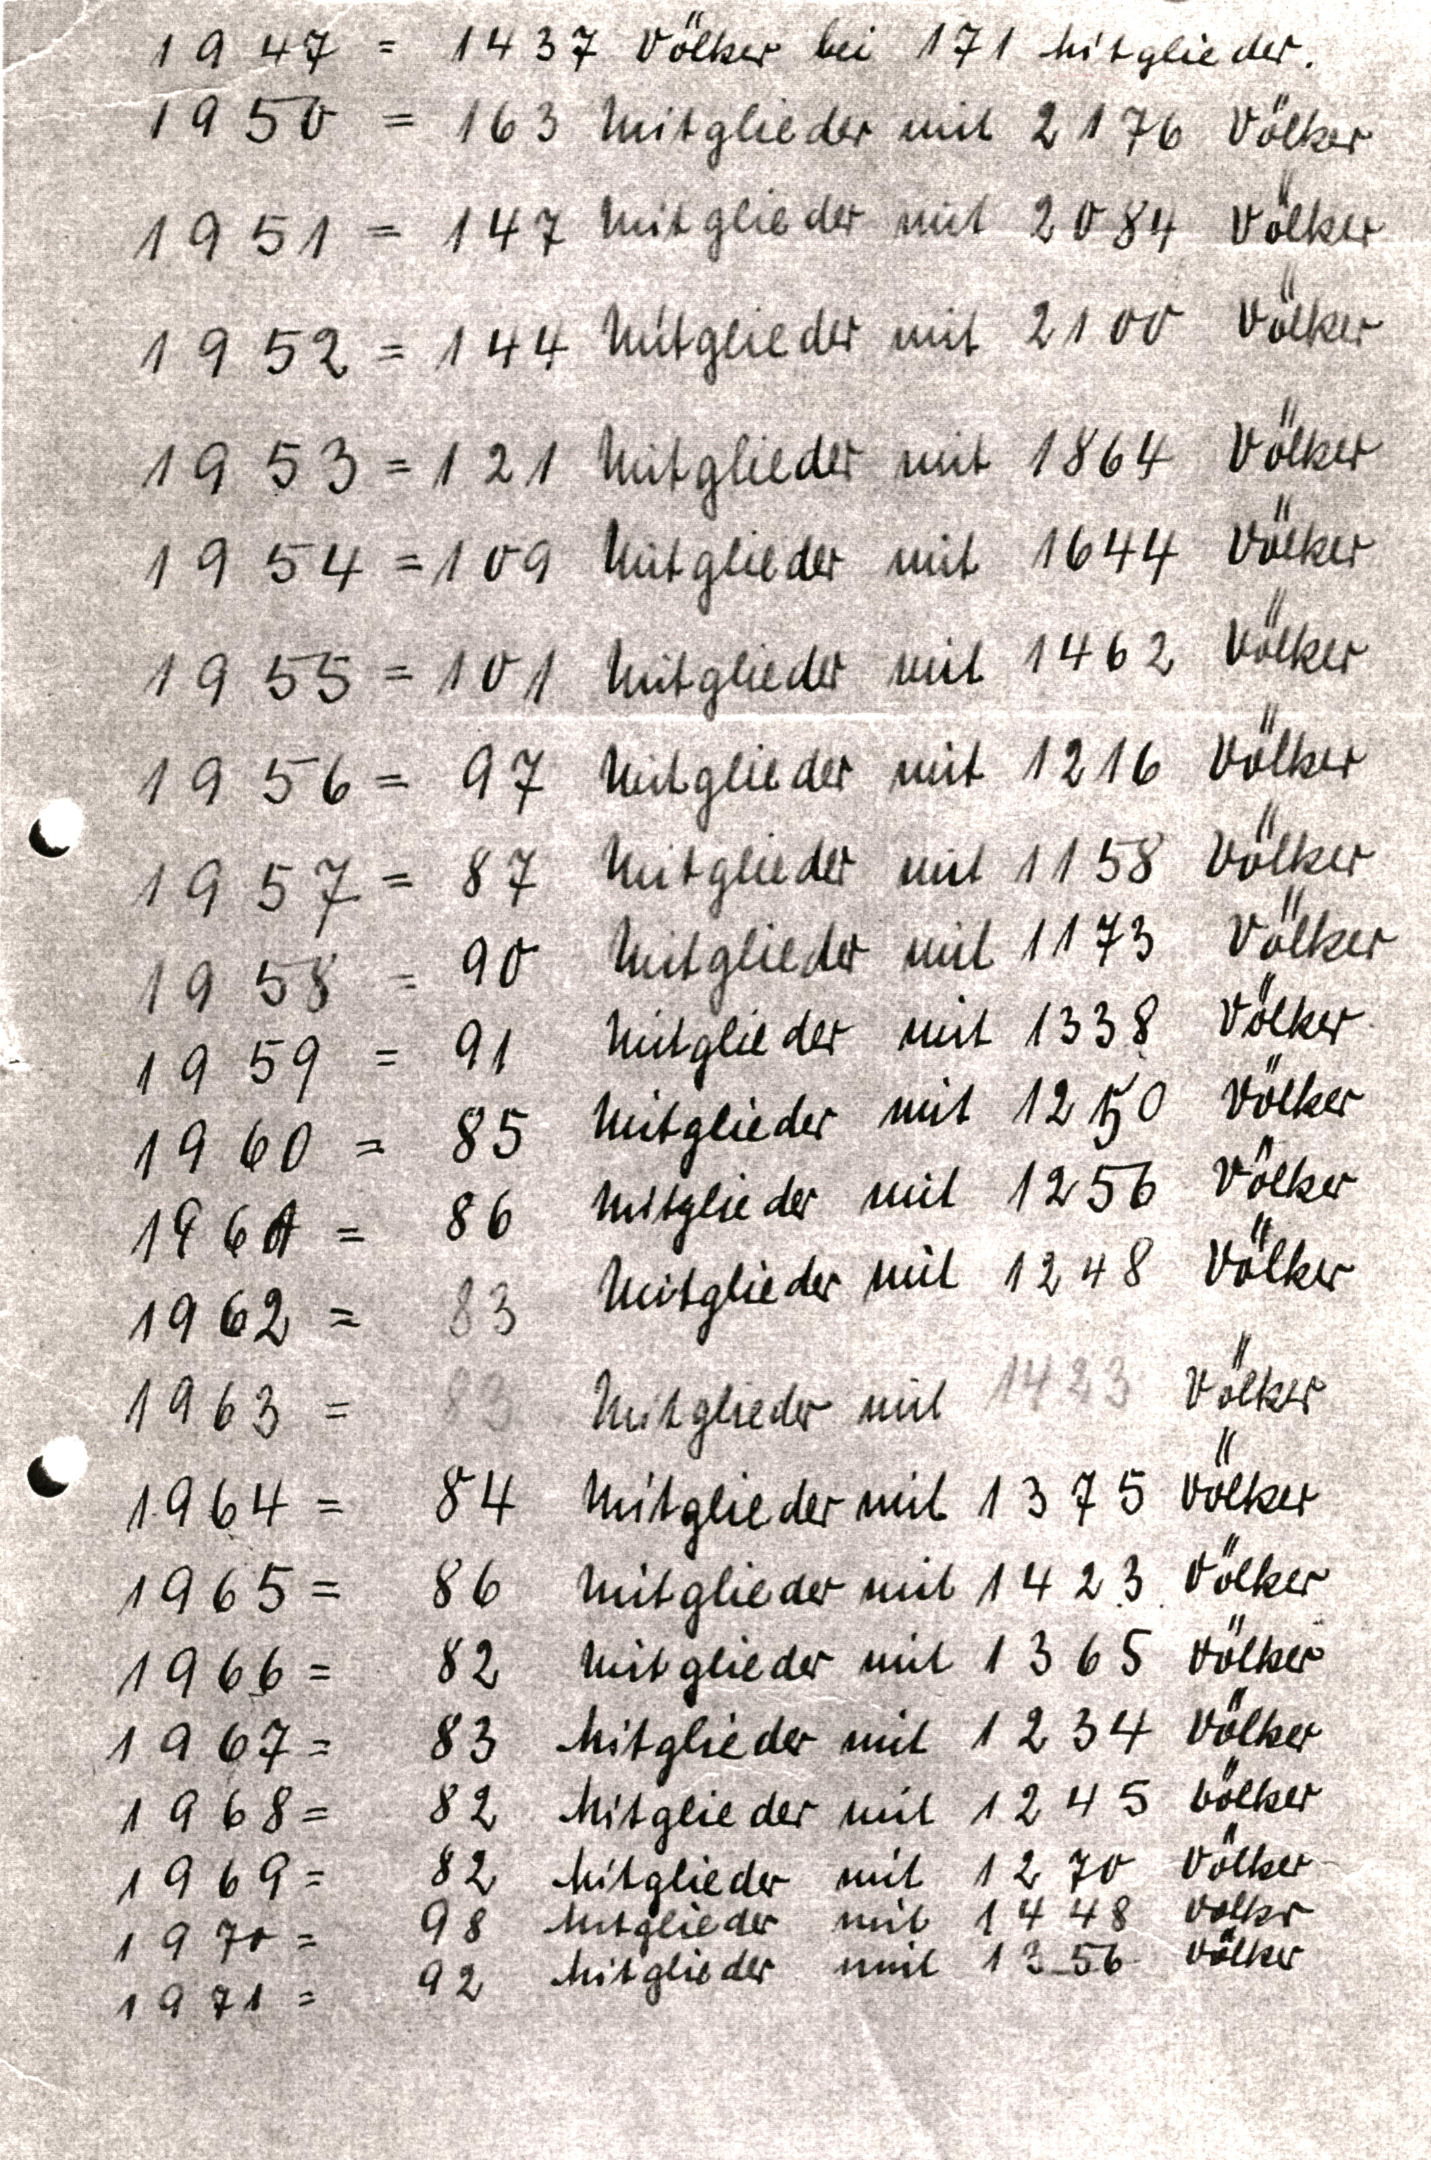 1947 = 1437 Völker bei 171 Mitglieder.
1950 = 163 Mitglieder mit 2176 Völker
1951 = 147 Mitglieder mit 2084 Völker
1952 = 144 Mitglieder mit 2100 Völker
1953 = 121 Mitglieder mit 1864 Völker
1954 = 109 Mitglieder mit 1644 Völker
1955 = 101 Mitglieder mit 1462 Völker
1956 = 97 Mitglieder mit 1216 Völker
1957 = 87 Mitglieder mit 1158 Völker
1958 = 90 Mitglieder mit 1173 Völker
1959 = 91 Mitglieder mit 1338 Völker
1960 = 85 Mitglieder mit 1250 Völker
1961 = 86 Mitglieder mit 1256 Völker
1962 = 83 Mitglieder mit 1248 Völker
1963 = 83 Mitglieder mit 1423 Völker
1964 = 84 Mitglieder mit 1375 Völker
1965 = 86 Mitglieder mit 1423 Völker
1966 = 82 Mitglieder mit 1365 Völker
1967 = 83 Mitglieder mit 1234 Völker
1968 = 82 Mitglieder mit 1245 Völker
1969 = 82 Mitglieder mit 1270 Völker
1970 = 98 Mitglieder mit 1448 Völker
1971 = 92 Mitglieder mit 1356 Völker